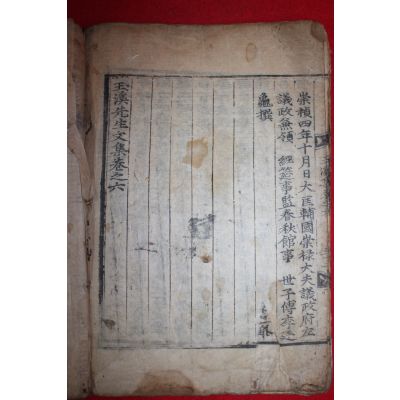 崇禎四年十月日大匡輔國崇祿大夫議政府左
議政兼領　經筵事監春秋館事　世子傅李廷
龜撰
玉溪先生文集卷之六